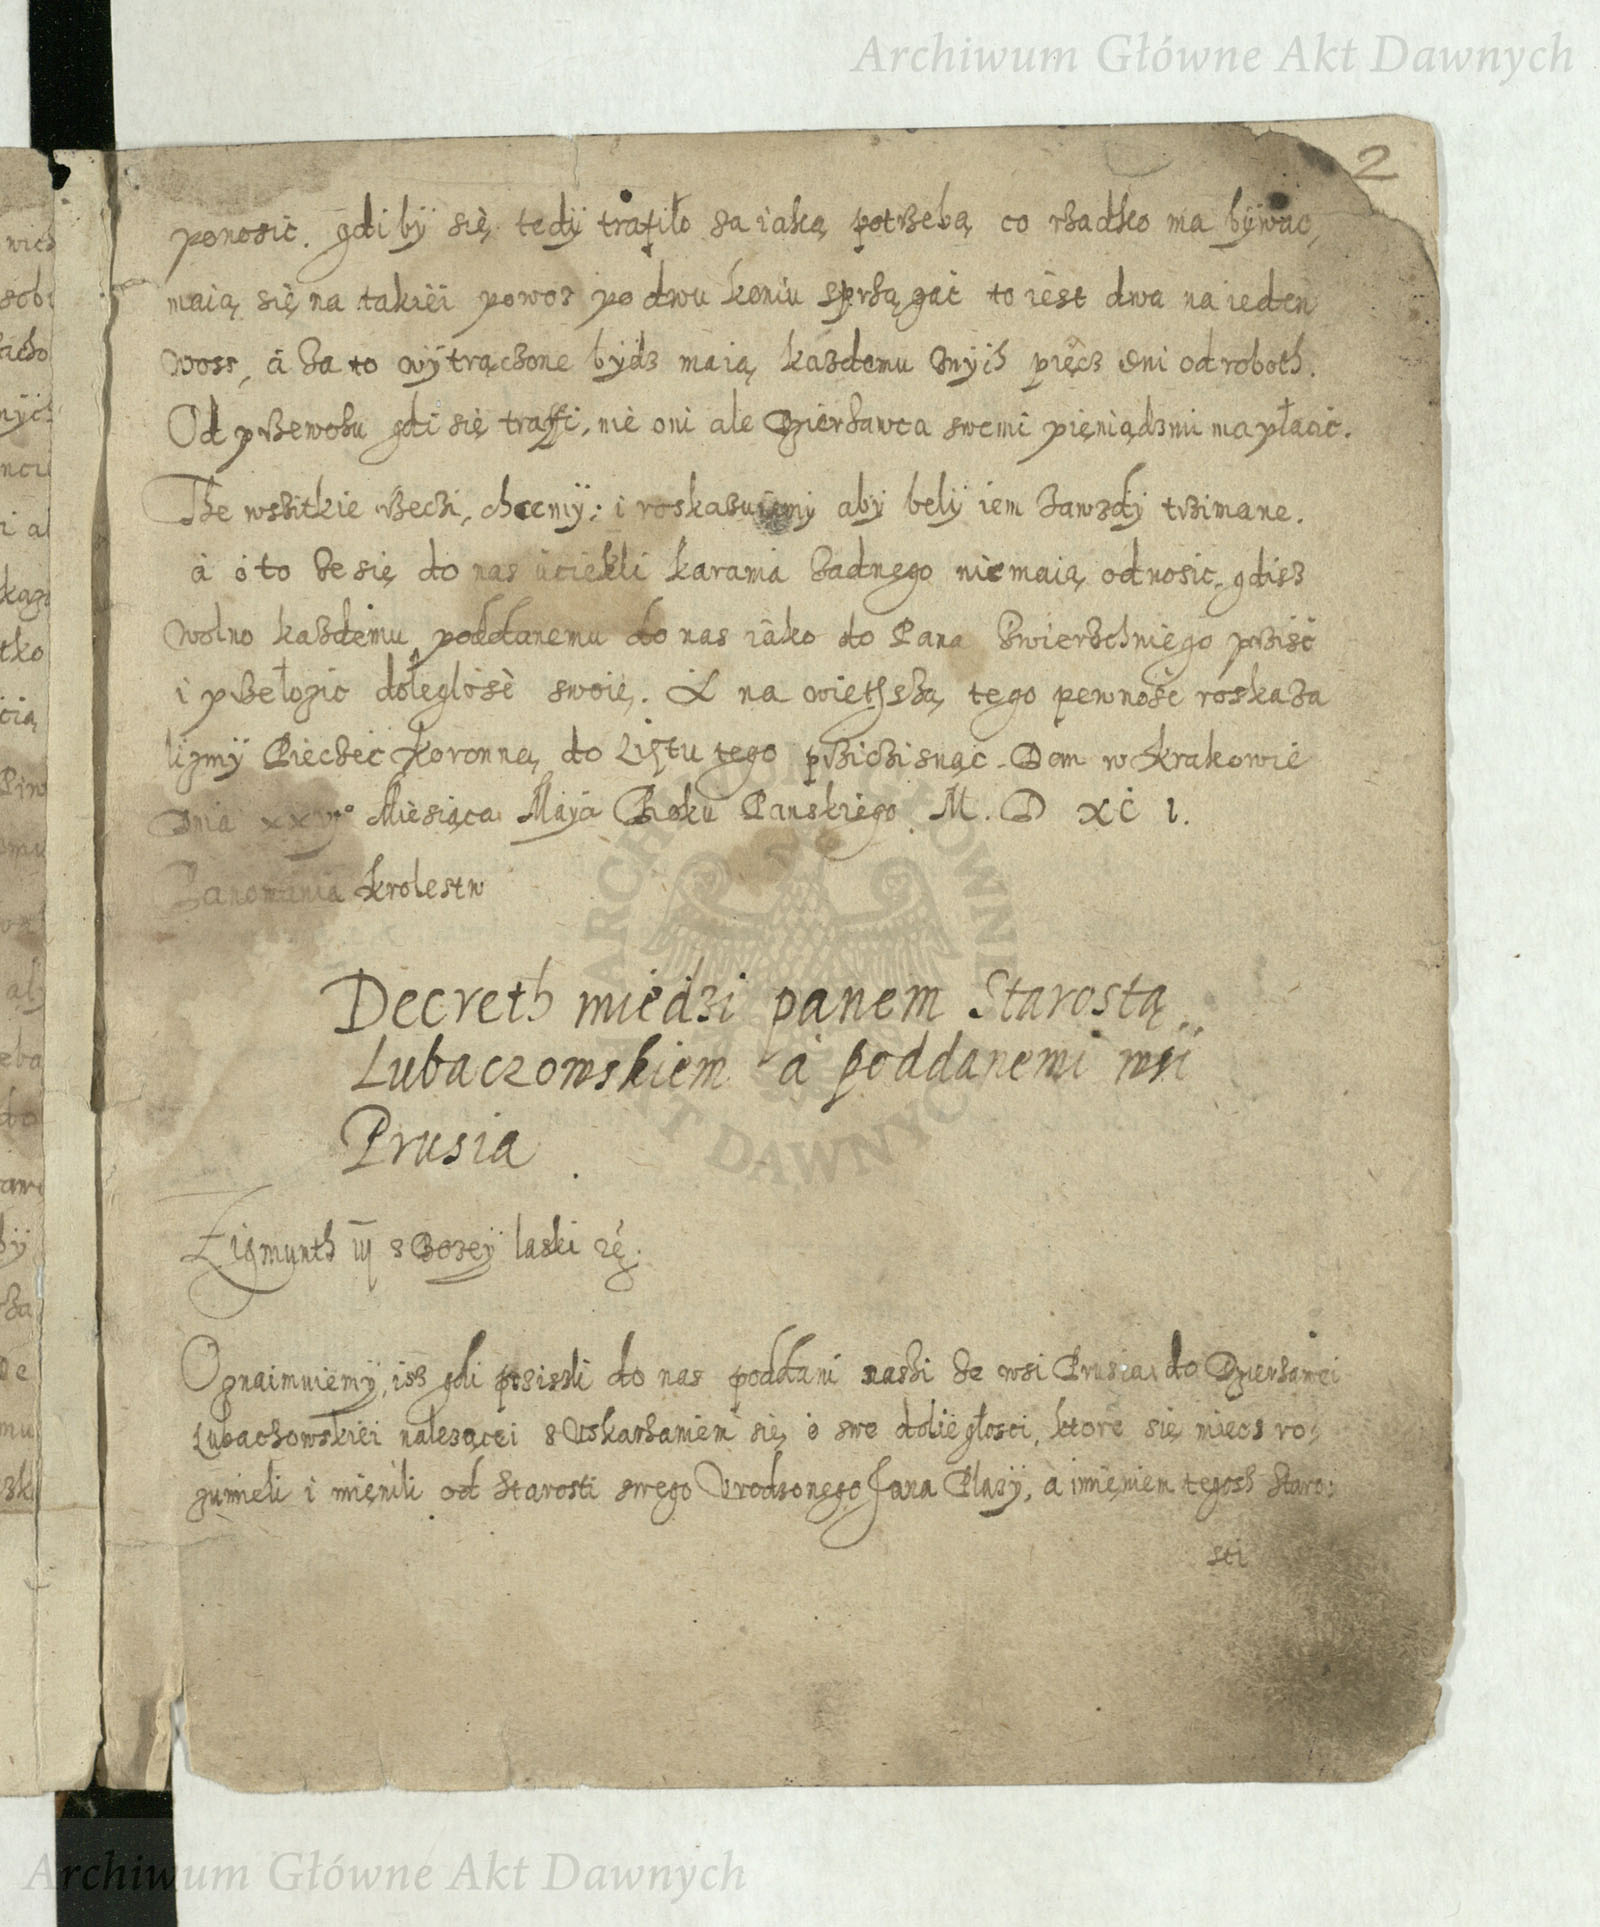 Archiwum Główne Akt Dawnych
2
ponosic. gdi bÿ się tedÿ trafiło za iaką potrzebą co rzadko ma bÿwac,
maią się na takiei powoz po dwu koniu sprzągać to iest dwa na ieden
woss, á za to wÿtrączone bÿdz maią każdemu znÿch pięcz dni od roboth.
Od przewozu gdi się traffi, nie oni ale Dzierzawca swemi pięniądzmi ma płacić.
The wszitkie rzeczi, chcemÿ, i roskazuiemÿ abÿ belÿ iem zawzdÿ trzimane.
á o to ze się do nas uciekli karania zadnego nie maią odnosic, gdisz
wolno każdemu poddanemu do nas iáko do Pana zwierzchniego przisć
i przełozic dołęglosć swoię. A na więthszą tego pewnosć roskaza
lizmÿ Piećzęć koronną do Listu tego prziczisnąc. Dan w Krakowie
Dnia xxvj° Miesiąca Maÿa Roku Panskiego M. D XC I.
Panowania krolestw
Decreth miedzi panem Starostą
Lubaczowskiem á poddanemi wsi
Prusia
Zigmunth iij z Bozeÿ laski zc.
Oznaimuiemÿ, isz gdi prziszli do nas poddani naszi ze wsi Prusia, do Dzierzawei
Lubaczowskiei należącei z Uskarzaniem się o swe dolięgłosci, ktore się miecz ro,
zumieli i mięnili od Starosti swego Urodzonego Jana Plazÿ, á imięniem tegosz Staro:
sti
ARCHIWUM GŁÓWNE AKT DAWNYCH
Archiwum Główne Akt Dawnych